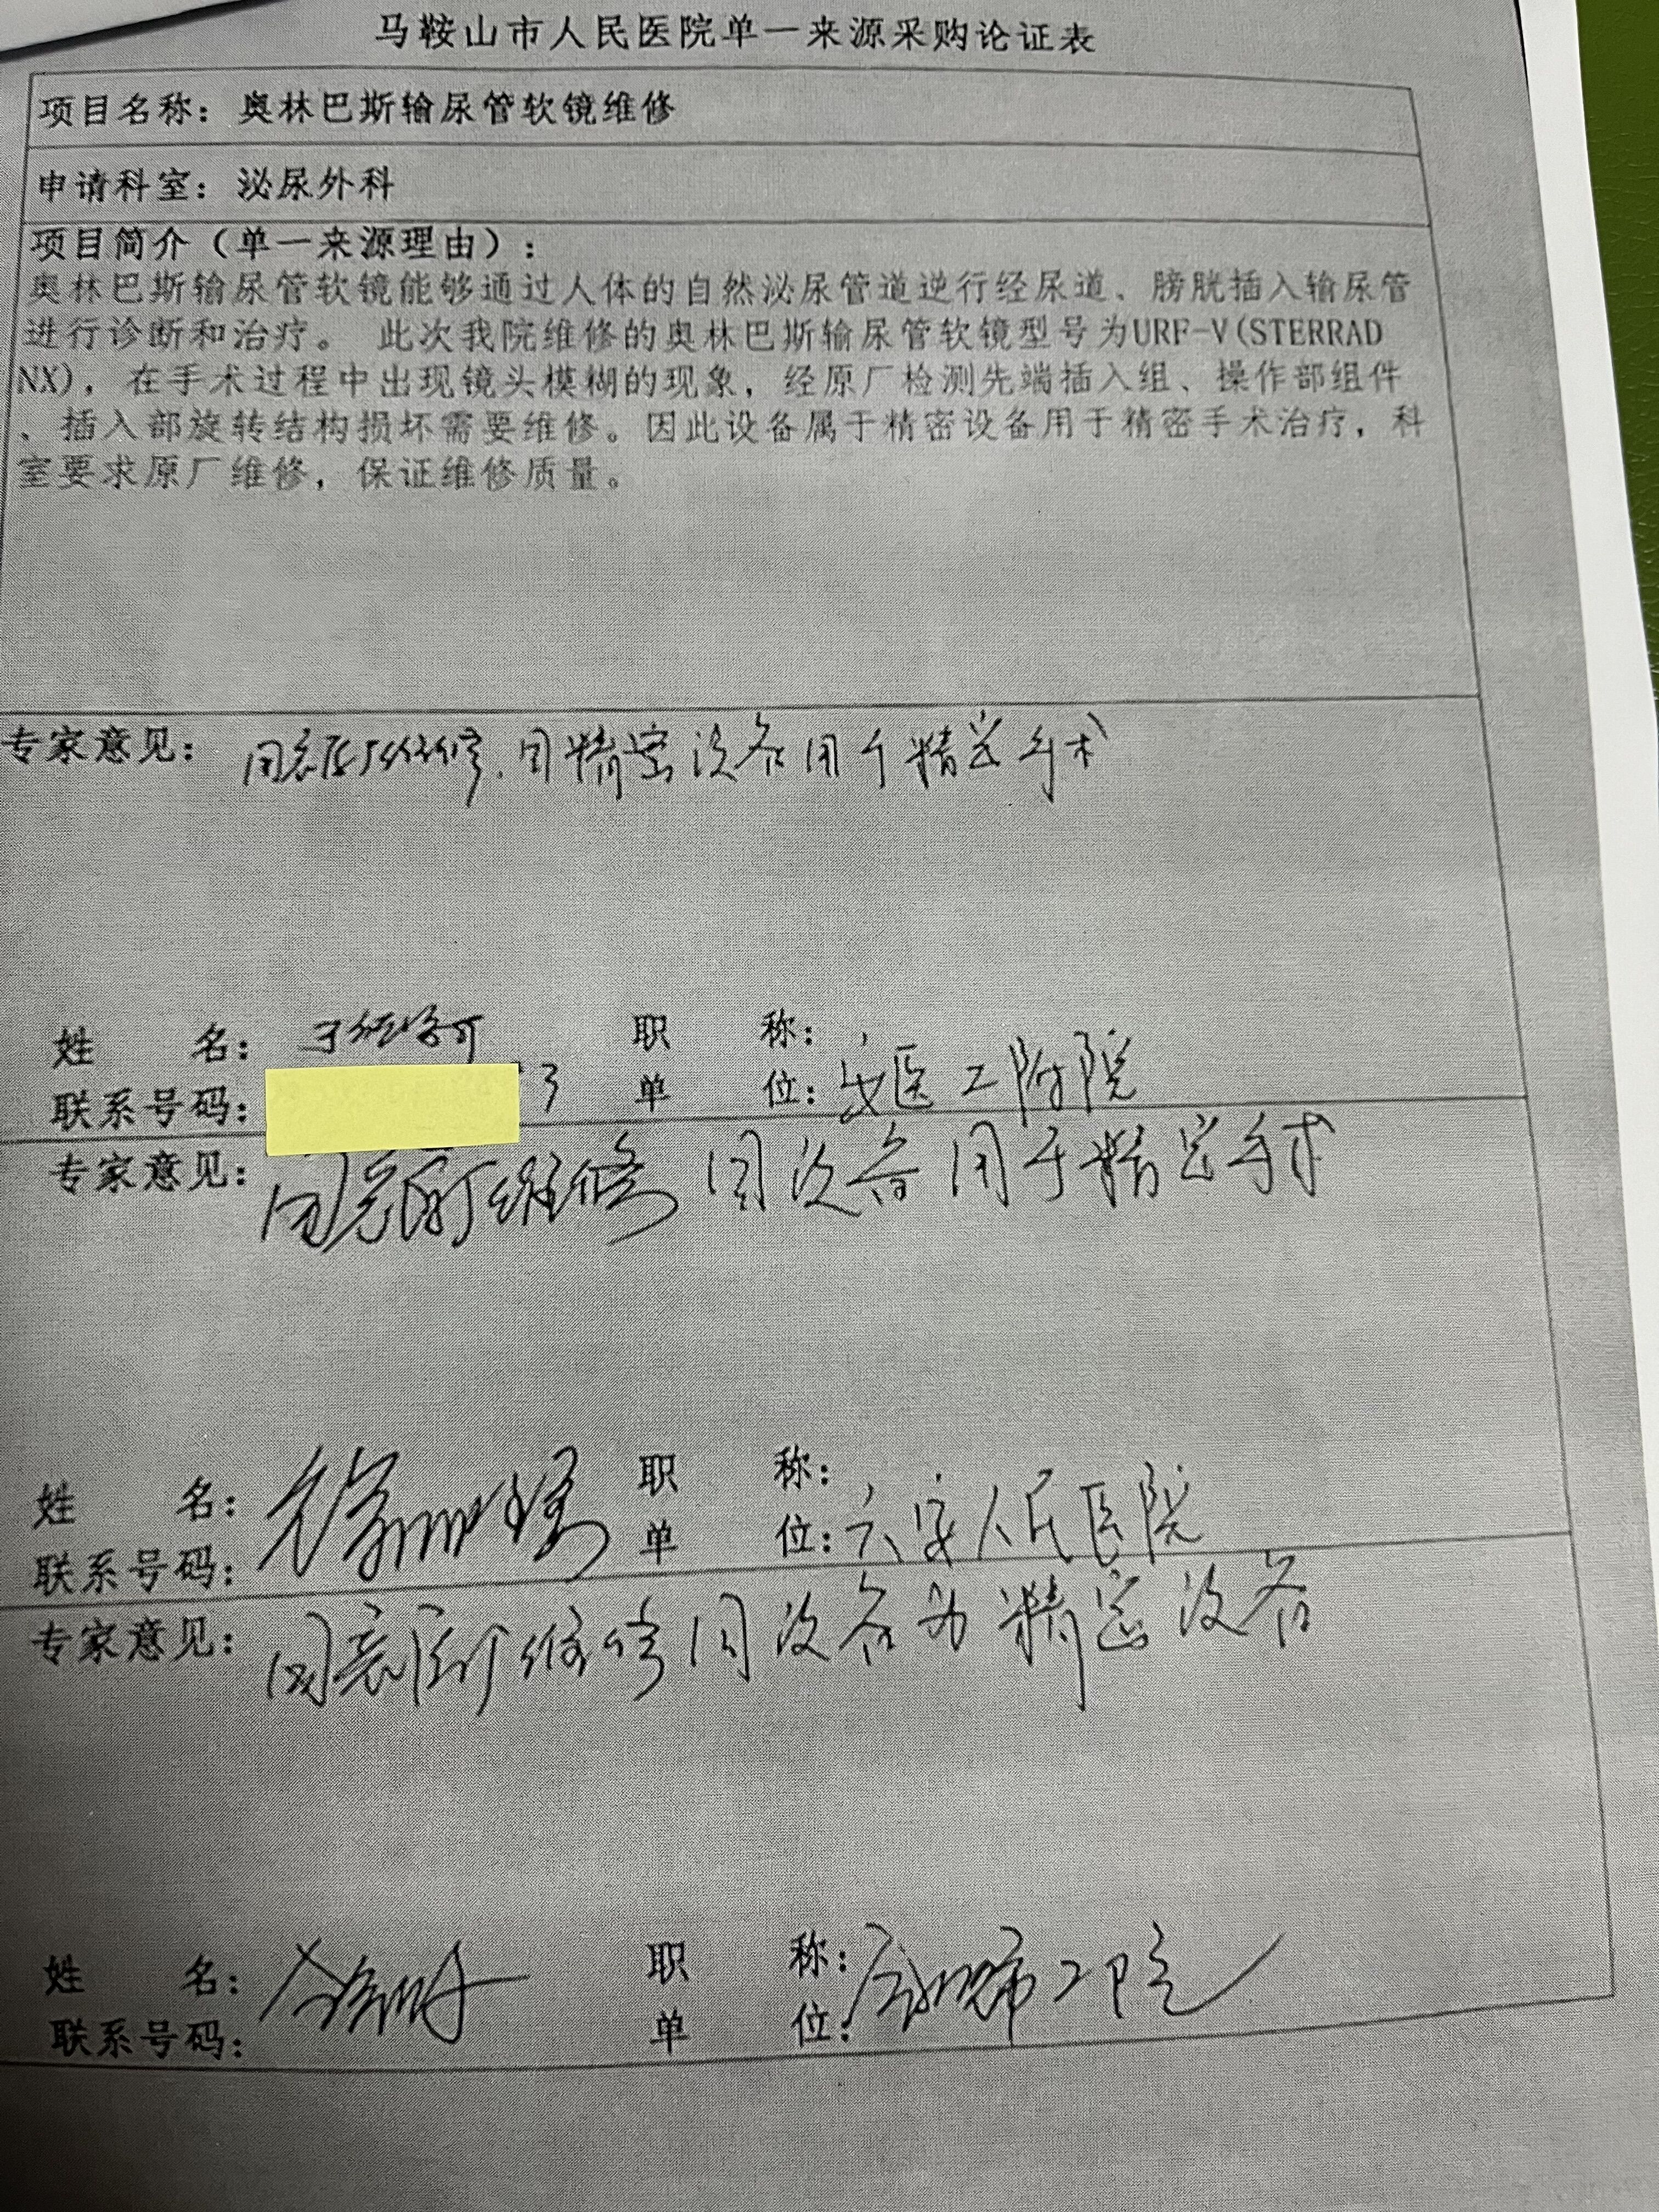 马鞍山市人民医院单一来源采购论证表
项目名称：奥林巴斯输尿管软镜维修
申请科室：泌尿外科
项目简介（单一来源理由）：
奥林巴斯输尿管软镜能够通过人体的自然泌尿管道逆行经尿道、膀胱插入输尿管
进行诊断和治疗。 此次我院维修的奥林巴斯输尿管软镜型号为URF-V(STERRAD
NX)，在手术过程中出现镜头模糊的现象，经原厂检测先端插入组、操作部组件
、插入部旋转结构损坏需要维修。因此设备属于精密设备用于精密手术治疗，科
室要求原厂维修，保证维修质量。
专家意见：同意原厂维修，因精密设备用于精密手术
姓 名： 职 称：
联系号码：3 单 位：安医工附院
专家意见：同意原厂维修 因设备用于精密手术
姓 名： 职 称：
联系号码： 单 位：六安人民医院
专家意见：同意原厂维修因设备为精密设备
姓 名： 职 称：
联系号码： 单 位：